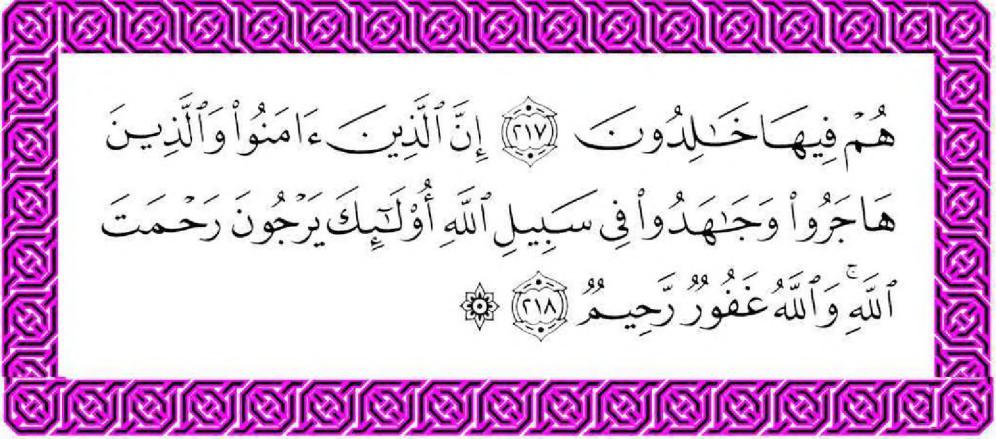 هُمۡ فِيهَا خَٰلِدُونَ ٢١٧ إِنَّ ٱلَّذِينَ ءَامَنُواْ وَٱلَّذِينَ
هَاجَرُواْ وَجَٰهَدُواْ فِي سَبِيلِ ٱللَّهِ أُوْلَٰٓئِكَ يَرۡجُونَ رَحۡمَتَ
ٱللَّهِۚ وَٱللَّهُ غَفُورٞ رَّحِيمٞ ٢١٨ ۞